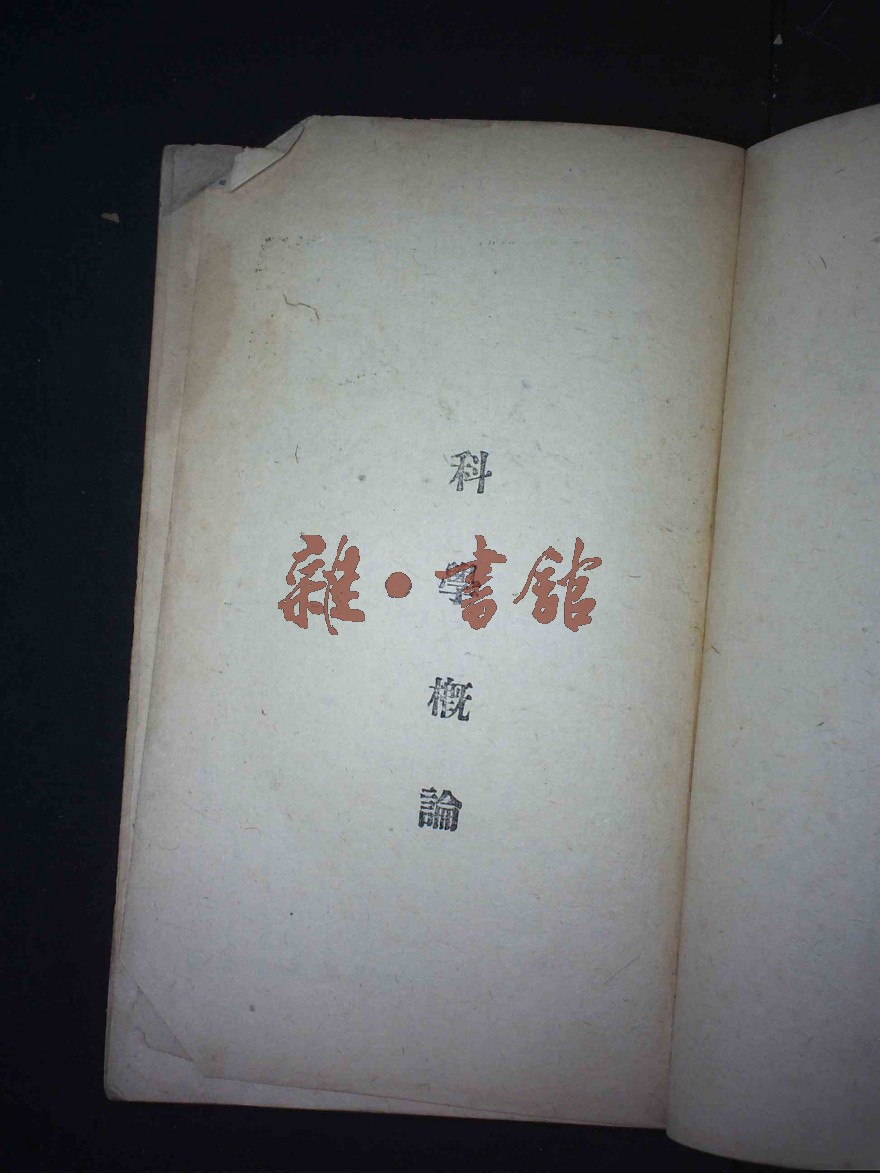 科學概論
雜·書館